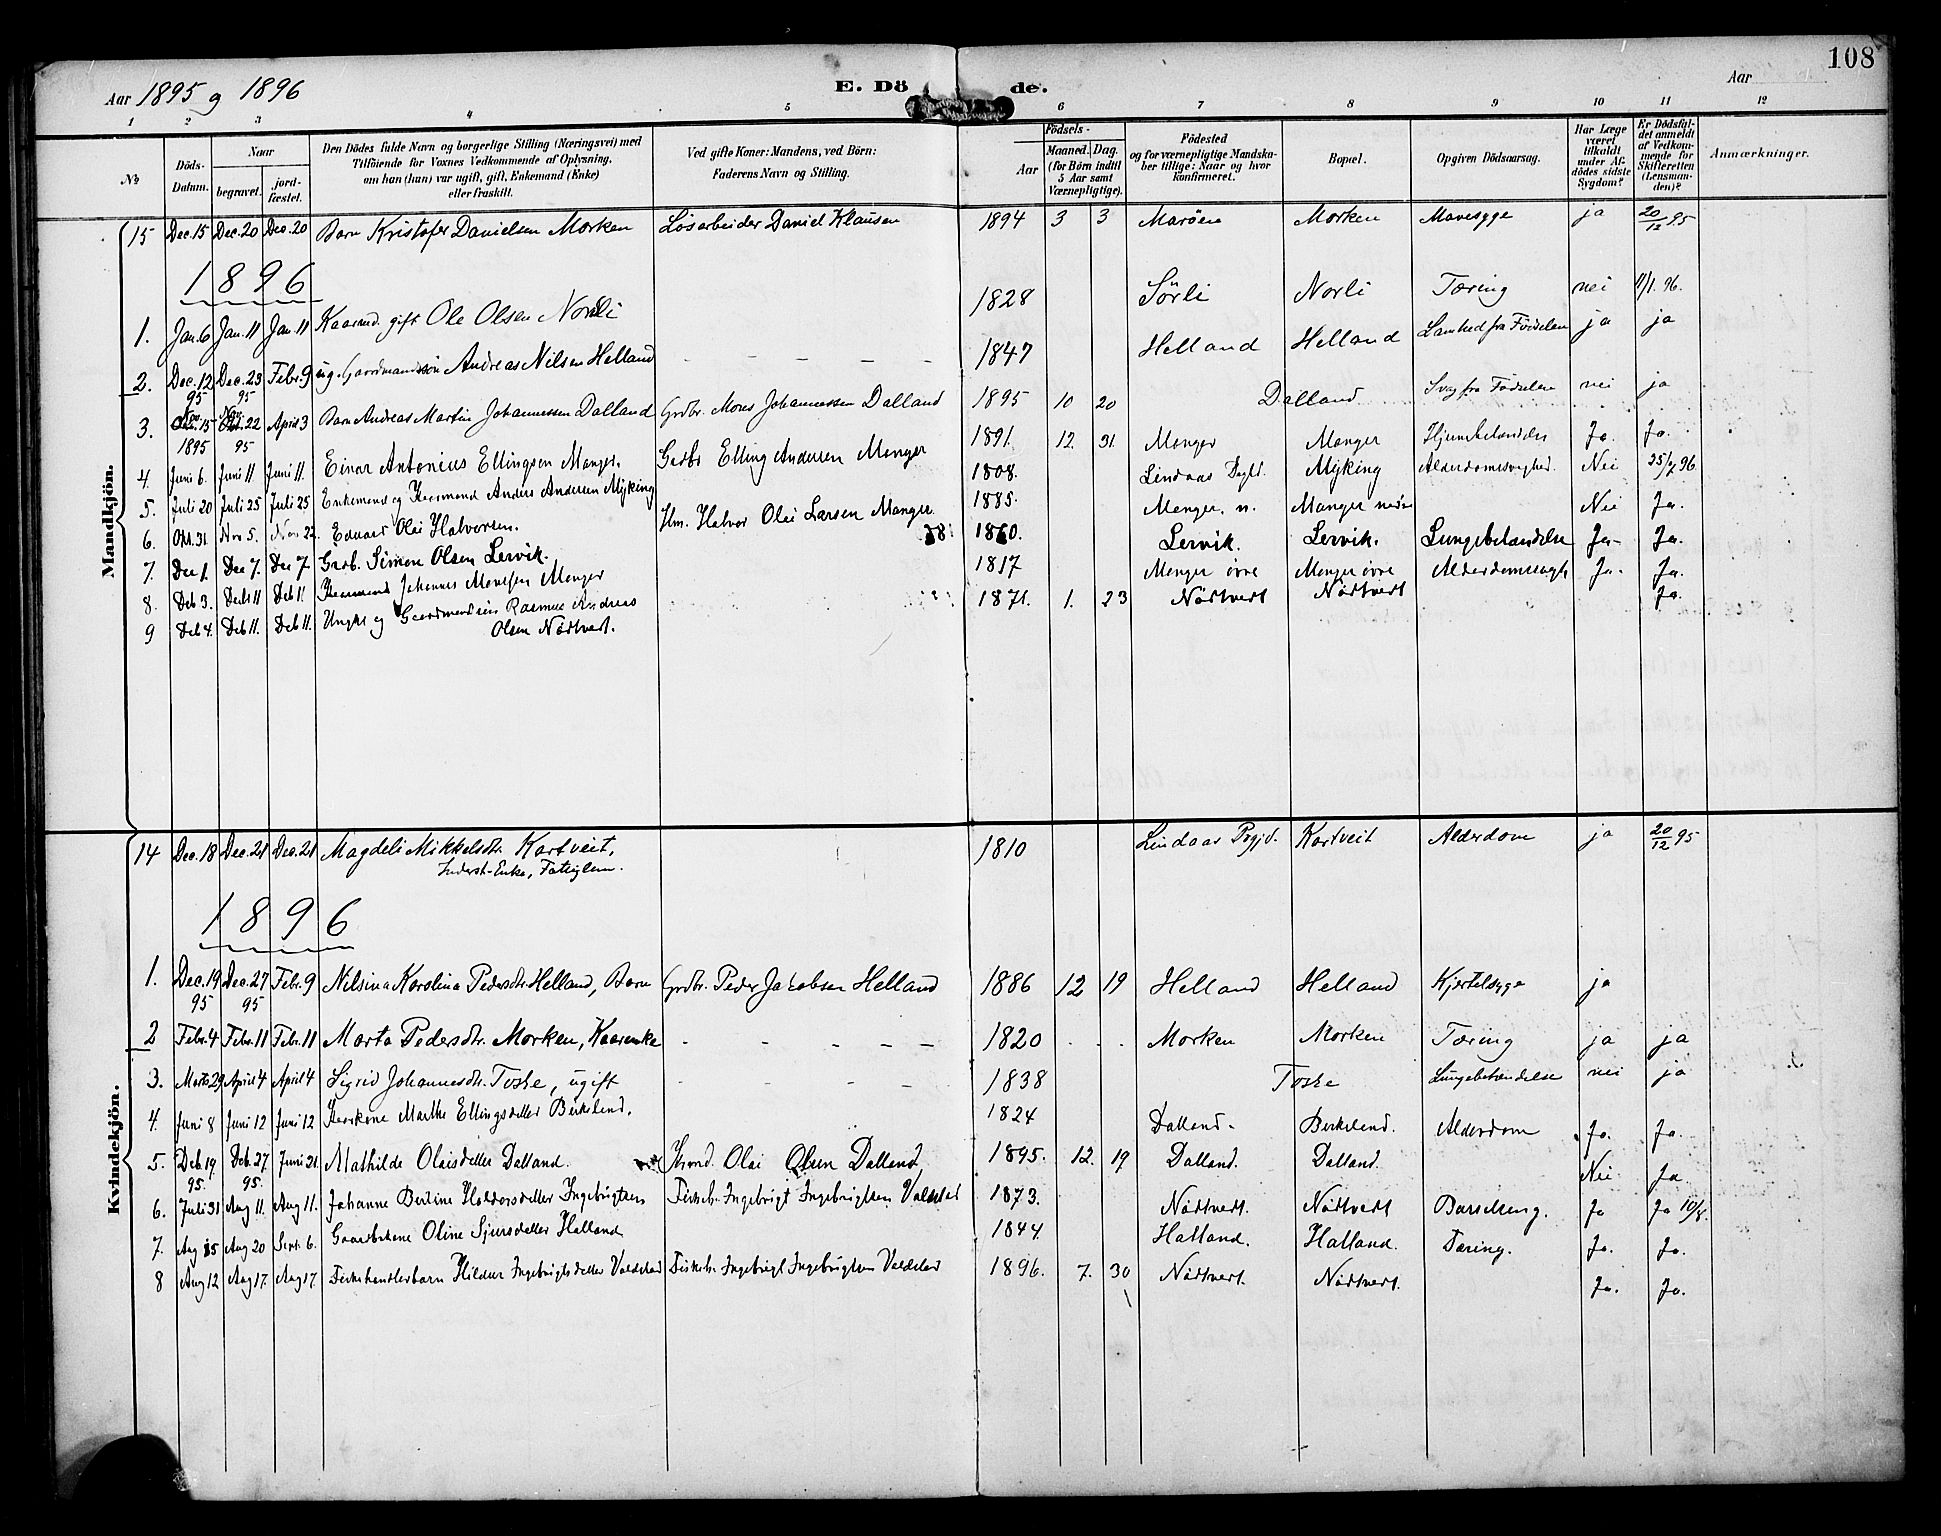 108
Aar 1895 og 1896 E. Dö de. Aar
1 2 3 4 5 6 7 8 9 10 11 12
No. Döds-Datum. Naar begravet. jord-fæstet. Den Dödes fulde Navn og borgerlige Stilling (Næringsvei) med Tilföiende for Voxnes Vedkommende af Oplysning, om han (hun) var ugift, gift, Enkemand (Enke) eller fraskilt. Ved gifte Koner: Mandens, ved Börn: Faderens Navn og Stilling. Födsels- Aar Maaned. Dag. (for Börn indtil 5 Aar samt Værnepligtige). Födested og for værnepligtige Mandskaber tillige: Naar og hvor konfirmeret. Bopæl. Opgiven Dödsaarsag. Har Læge været tilkaldt under Afdödes sidste Sygdom? Er Dödsfaldet anmeldt af Vedkommende for Skifteretten (Lensmanden)? Anmærkninger.
Mandkjön.
15 Dec. 15 Dec. 20 Dec. 20 Barn Kristofer Danielsen Morken Lösarbeider Daniel Klausen 1894 3 3 Maröen Morken Mavesyge ja 20/12 95
1896
1. Jan. 6 Jan. 11 Jan. 11 Kaarmd. gift Ole Olsen Norli 1828 Sörli Norli Tæring nei 11/1. 96.
2. Dec. 12 95 Dec. 23 95 Febr. 9 ug. Gaardmandssön Andreas Nilsen Helland - - - - - 1847 Helland Helland Lamhed fra Födselen ja ja
3. Nov. 15 1895 Nov. 22 95 April 3 Barn Andreas Martin Johannessen Dalland Grdbr. Mons Johannessen Dalland 1895 10 20 Dalland Svag fra Födselen nei ja
4. Juni 6. Juni 11 Juni 11. Einar Antonius Ellingsen Manger. Grdbr Elling Andersen Manger 1891. 12. 31. Manger Manger Hjernebetændelse Ja. Ja.
5. Juli 20 Juli 25 Juli 25 Enkemand og Kaarmand Anders Andersen Mÿking 1808. Lindaas Mÿking Alderdomssvaghed. Nei 25/7 96.
6. Okt. 31. Nov 5. Nov 22. Edvard Olai Halvorsen. Hm. Halvor Olai Larsen Manger. 1885. Manger. n. Manger nedre Nei Ja.
7. Dec 1. Dec 7. Dec 7. Grdb. Simon Olsen Lervik. Lervik. Lervik. Lungebetændelse Ja. Ja.
8. Deb 3. Deb 11 Deb 11. Kaarmand Johannes Monssen Manger 1817 Manger övre Manger övre Ja. Ja.
9 Deb 4. Deb 11. Deb 11. Ungkl og Gaardmandssön Rasmus Andreas Olsen Nödtvert. 1871. 1. 23 Nödtvert Nödtvert Ja.
Kvindekjön.
14 Dec. 18 Dec. 21 Dec. 21 Magdeli Mikkelsdtr. Kartveit, Inderst-Enke, Fattiglem. 1810 Lindaas Prgjd. Kartveit Alderdom ja 20/12 95
1896
1. Dec. 19 95 Dec. 27 95 Febr. 9 Nilsina Karolina Pedersdtr. Helland, Barn Grdbr. Peder Jakobsen Helland 1886 12 19 Helland Helland Kjertelsyge ja
2 Febr. 4 Febr. 11 Febr. 11 Marta Pedersdtr. Morken, Kaarenke - - - - - 1820 . . . Morken Morken Tæring ja ja
3. Marts 29 April 4 April 4 Sigrid Johannesdtr. Toske, ugift - - - - 1838 Toske Lungebetændelse nei ja
4. Juni 8 Juni 12 Juni 12 Kaarkone Marthe Ellingsdatter Birkeland. 1824 Dalland. Birkeland. Alderdom Ja. Ja.
5. Deb 19. 95. Deb. 27 95. Juni 21. Mathilde Olaisdatter Dalland. Olai Olsen Dalland 1895. 12. 19 Dalland. Dalland. Nei Ja.
6. Juli 31 Aug 11. Aug 11. Johanne Bertine Haldorsdatter Ingebrigtsen Fiskeh. Ingebrigt Ingebrigtsen Valdstad 1873. Nödtvert. Nödtvert Barselseng. Ja Ja 10/8.
7. Aug 15 Aug 20 Sept. 6. Gaardbkone Oline Sjursdatter Halland 1844. Halland. Halland. Tæring. Ja. Ja.
8 Aug 12 Aug 17. Aug 17. Fiskehandlerbarn Hildur Ingebrigtsdatter Valdstad Fiskehr. Ingebrigt Ingebrigtsen Valdstad 1896. 7. 30 Nödtvert. Nödtvert. Ja. Ja.